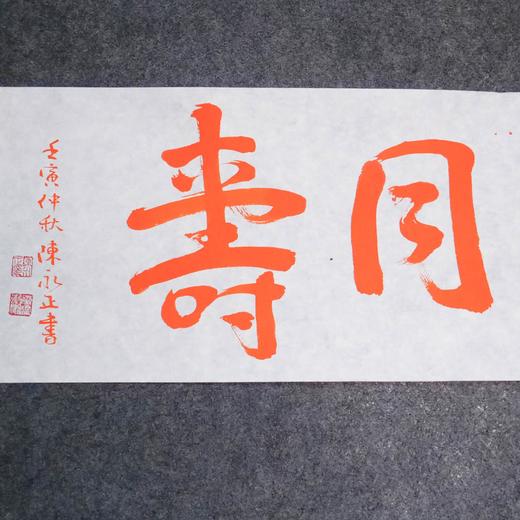 同壽
壬寅仲秋陳永正書